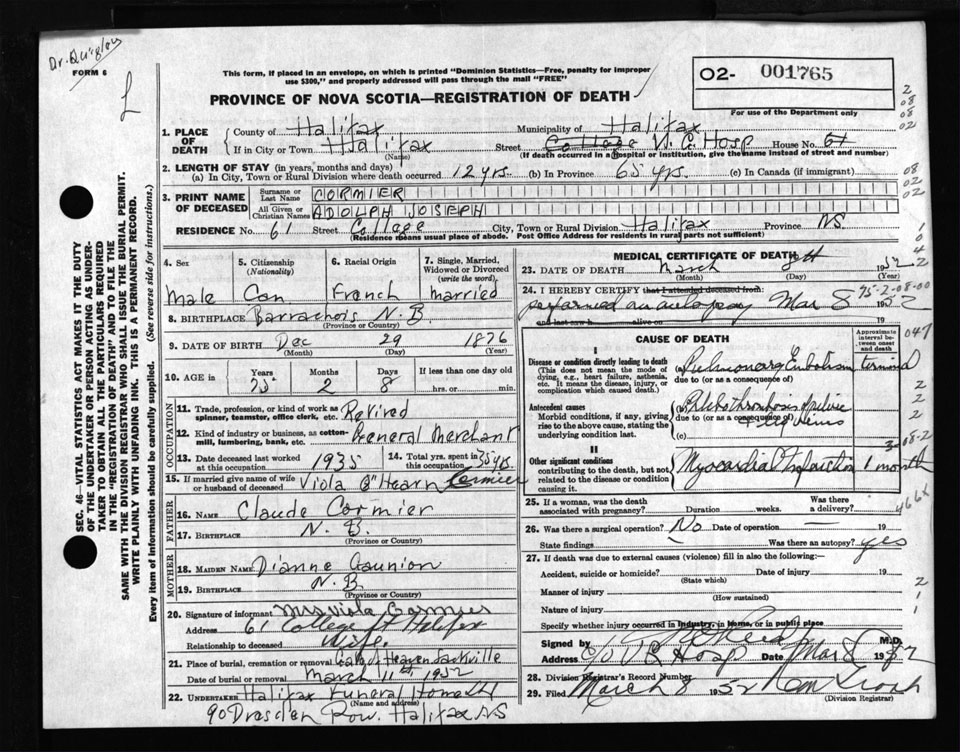 Dr. Quigley
FORM 6
L
This form, if placed in an envelope, on which is printed "Dominion Statistics—Free, penalty for improper
use $300," and properly addressed will pass through the mail "FREE"
O2- 001765
For use of the Department only
PROVINCE OF NOVA SCOTIA—REGISTRATION OF DEATH
1. PLACE OF DEATH
County of Halifax Municipality of Halifax
If in City or Town Halifax Street College V. G. Hosp House No. 61
(Name) (If death occurred in a hospital or institution, give the name instead of street and number)
2. LENGTH OF STAY (in years, months and days)
(a) In City, Town or Rural Division where death occurred 12 yrs. (b) In Province 65 yrs. (c) In Canada (if immigrant)
3. PRINT NAME OF DECEASED
Surname or Last Name CORMIER
All Given or Christian Names ADOLPH JOSEPH
RESIDENCE No. 61 Street College City, Town or Rural Division Halifax Province NS
(Residence means usual place of abode. Post Office Address for residents in rural parts not sufficient)
4. Sex
Male
5. Citizenship (Nationality)
Can
6. Racial Origin
French
7. Single, Married, Widowed or Divorced (write the word)
married
8. BIRTHPLACE Barrachois N.B.
(Province or Country)
9. DATE OF BIRTH Dec 29 1876
(Month) (Day) (Year)
10. AGE in Years Months Days If less than one day old
75 2 8 hrs. or min.
OCCUPATION
11. Trade, profession, or kind of work as spinner, teamster, office clerk, etc. Retired
12. Kind of industry or business, as cotton-mill, lumbering, bank, etc. General Merchant
13. Date deceased last worked at this occupation 1935
14. Total yrs. spent in this occupation 35 yrs.
15. If married give name of wife or husband of deceased Viola O'Hearn Cormier
FATHER
16. NAME Claude Cormier
17. BIRTHPLACE N.B.
(Province or Country)
MOTHER
18. MAIDEN NAME Dianne Gaunion
19. BIRTHPLACE N.B.
(Province or Country)
20. Signature of informant Mrs Viola Cormier
Address 61 College St Halifax
Relationship to deceased Wife.
21. Place of burial, cremation or removal Gate of Heaven Sackville
Date of burial or removal March 11th 1952
22. UNDERTAKER Halifax Funeral Home Ltd
(Name and address)
90 Dresden Row. Halifax NS
MEDICAL CERTIFICATE OF DEATH
23. DATE OF DEATH March 8th 1952
(Month) (Day) (Year)
24. I HEREBY CERTIFY that I attended deceased from:
performed an autopsy Mar 8 1952
and last saw h alive on 19
CAUSE OF DEATH
Approximate interval between onset and death
I
Disease or condition directly leading to death
(This does not mean the mode of dying, e.g., heart failure, asthenia, etc. It means the disease, injury, or complication which caused death.)
(a) Pulmonary Embolism terminal
due to (or as a consequence of)
Antecedent causes
Morbid conditions, if any, giving rise to the above cause, stating the underlying condition last.
(b) Phlebothrombosis of pelvic & leg veins
due to (or as a consequence of)
(c)
II
Other significant conditions
contributing to the death, but not related to the disease or condition causing it.
Myocardial Infarction 1 month
25. If a woman, was the death associated with pregnancy? Duration weeks. Was there a delivery?
26. Was there a surgical operation? No Date of operation — 19
State findings — Was there an autopsy? yes
27. If death was due to external causes (violence) fill in also the following:—
Accident, suicide or homicide? Date of injury 19
(State which)
Manner of injury
(How sustained)
Nature of injury
Specify whether injury occurred in industry, in home, or in public place
Signed by M.D.
Address c/o V G Hosp Date Mar 8 1952
28. Division Registrar's Record Number
29. Filed March 8 1952
(Division Registrar)
SEC. 46—VITAL STATISTICS ACT MAKES IT THE DUTY
OF THE UNDERTAKER OR PERSON ACTING AS UNDER-
TAKER TO OBTAIN ALL THE PARTICULARS REQUIRED
IN THE "REGISTRATION OF DEATH" AND TO FILE THE
SAME WITH THE DIVISION REGISTRAR WHO SHALL ISSUE THE BURIAL PERMIT.
WRITE PLAINLY WITH UNFADING INK. THIS IS A PERMANENT RECORD.
Every item of information should be carefully supplied. (See reverse side for instructions.)
2
08
08
02
08
02
02
1
0
4
75-2-08-00
047
2
2
2
3
08-2
466x
2
1
1